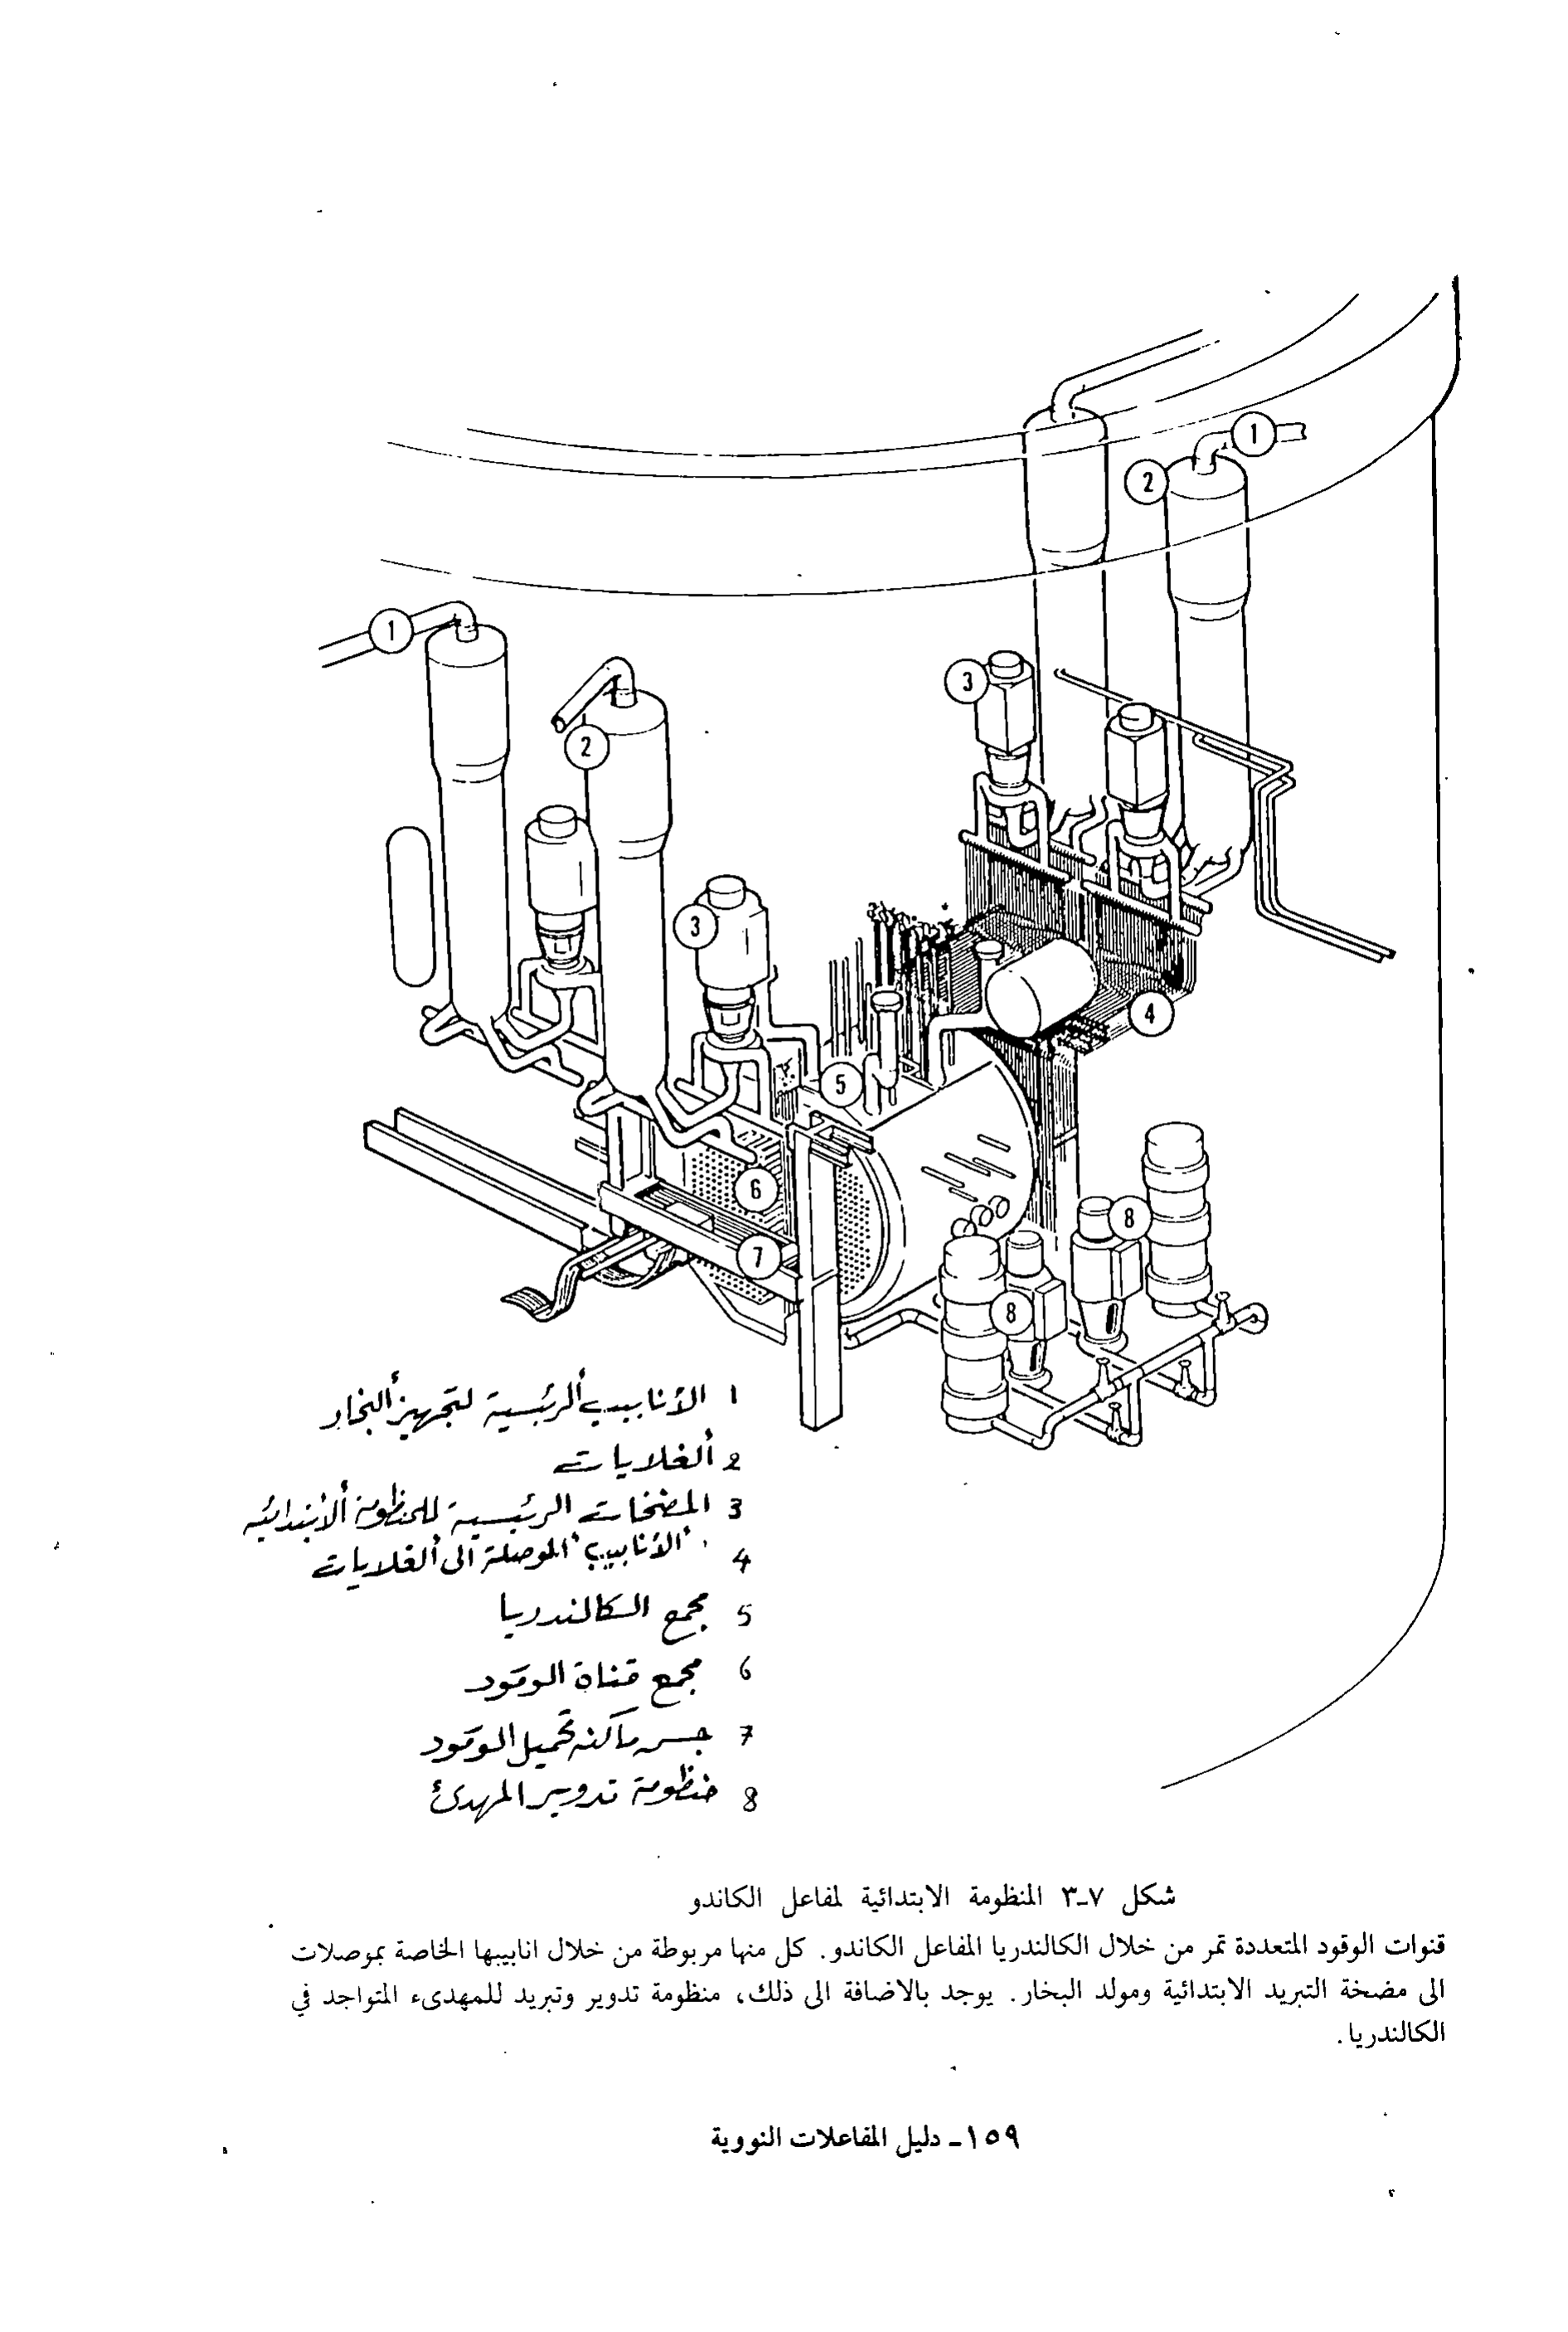 1
1
2
3
1
2
3
4
5
6
7
8
8
1 الأنابيب الرئيسية لتجهيز البخار
2 الغلايات
3 المضخات الرئيسية للمنظومة الابتدائية
4 الأنابيب الموصلة الى الغلايات
5 مجمع الكالندريا
6 مجمع قناة الوقود
7 جسر ماكنة تحميل الوقود
8 منظومة تدوير المهدئ
شكل ٧-٣ المنظومة الابتدائية لمفاعل الكاندو
قنوات الوقود المتعددة تمر من خلال الكالندريا المفاعل الكاندو. كل منها مربوطة من خلال انابيبها الخاصة بموصلات
الى مضخة التبريد الابتدائية ومولد البخار. يوجد بالاضافة الى ذلك، منظومة تدوير وتبريد للمهدىء المتواجد في
الكالندريا.
١٥٩- دليل المفاعلات النووية